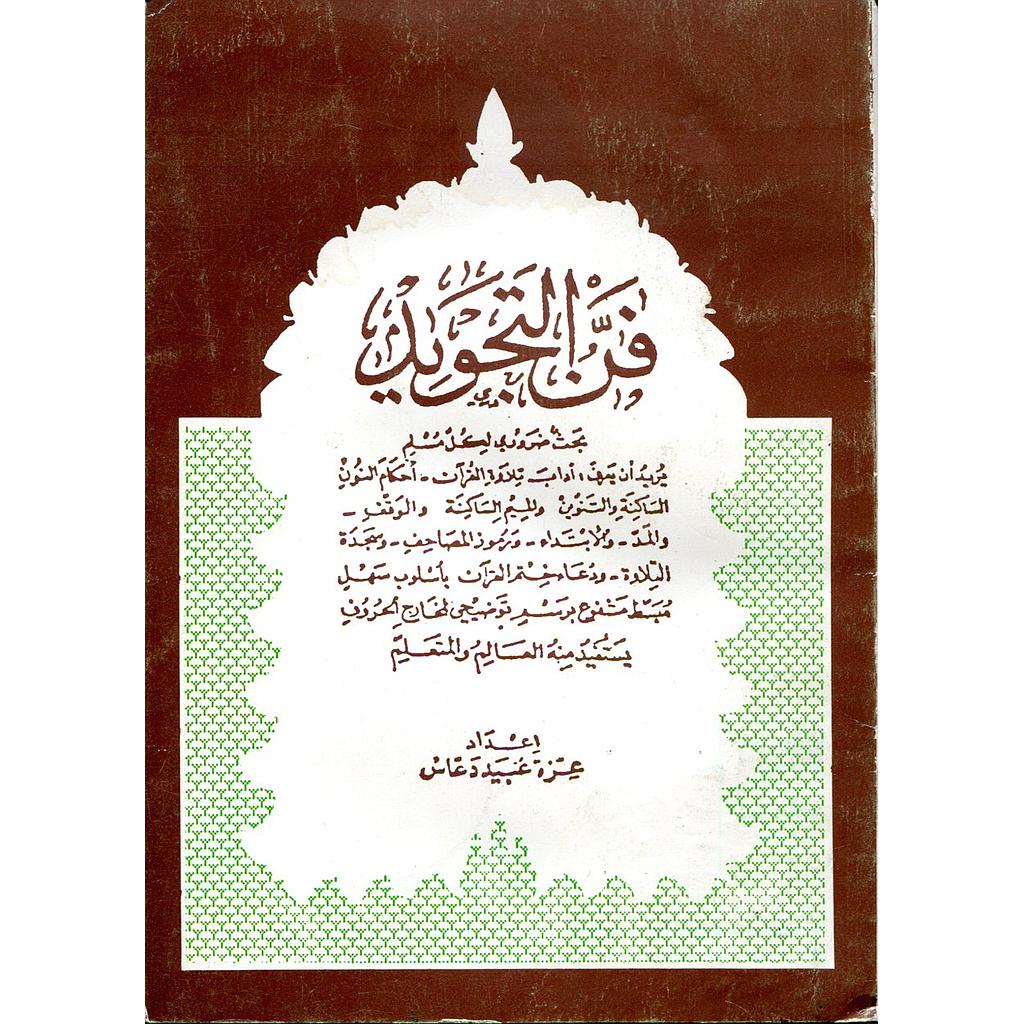 فَنّ التَّجْوِيد
بحث ضروري لكل مسلم
يريد أن يعرف : آداب تلاوة القرآن - أحكام النون
الساكنة والتنوين والميم الساكنة والوقف -
والمد - والابتداء - ورموز المصاحف - وسجدة
التلاوة - ودعاء ختم القرآن بأسلوب سهل
مبسط مشفوع برسم توضيحي لمخارج الحروف
يستفيد منه العالم والمتعلم
إعداد
عزة عبيد دعاس